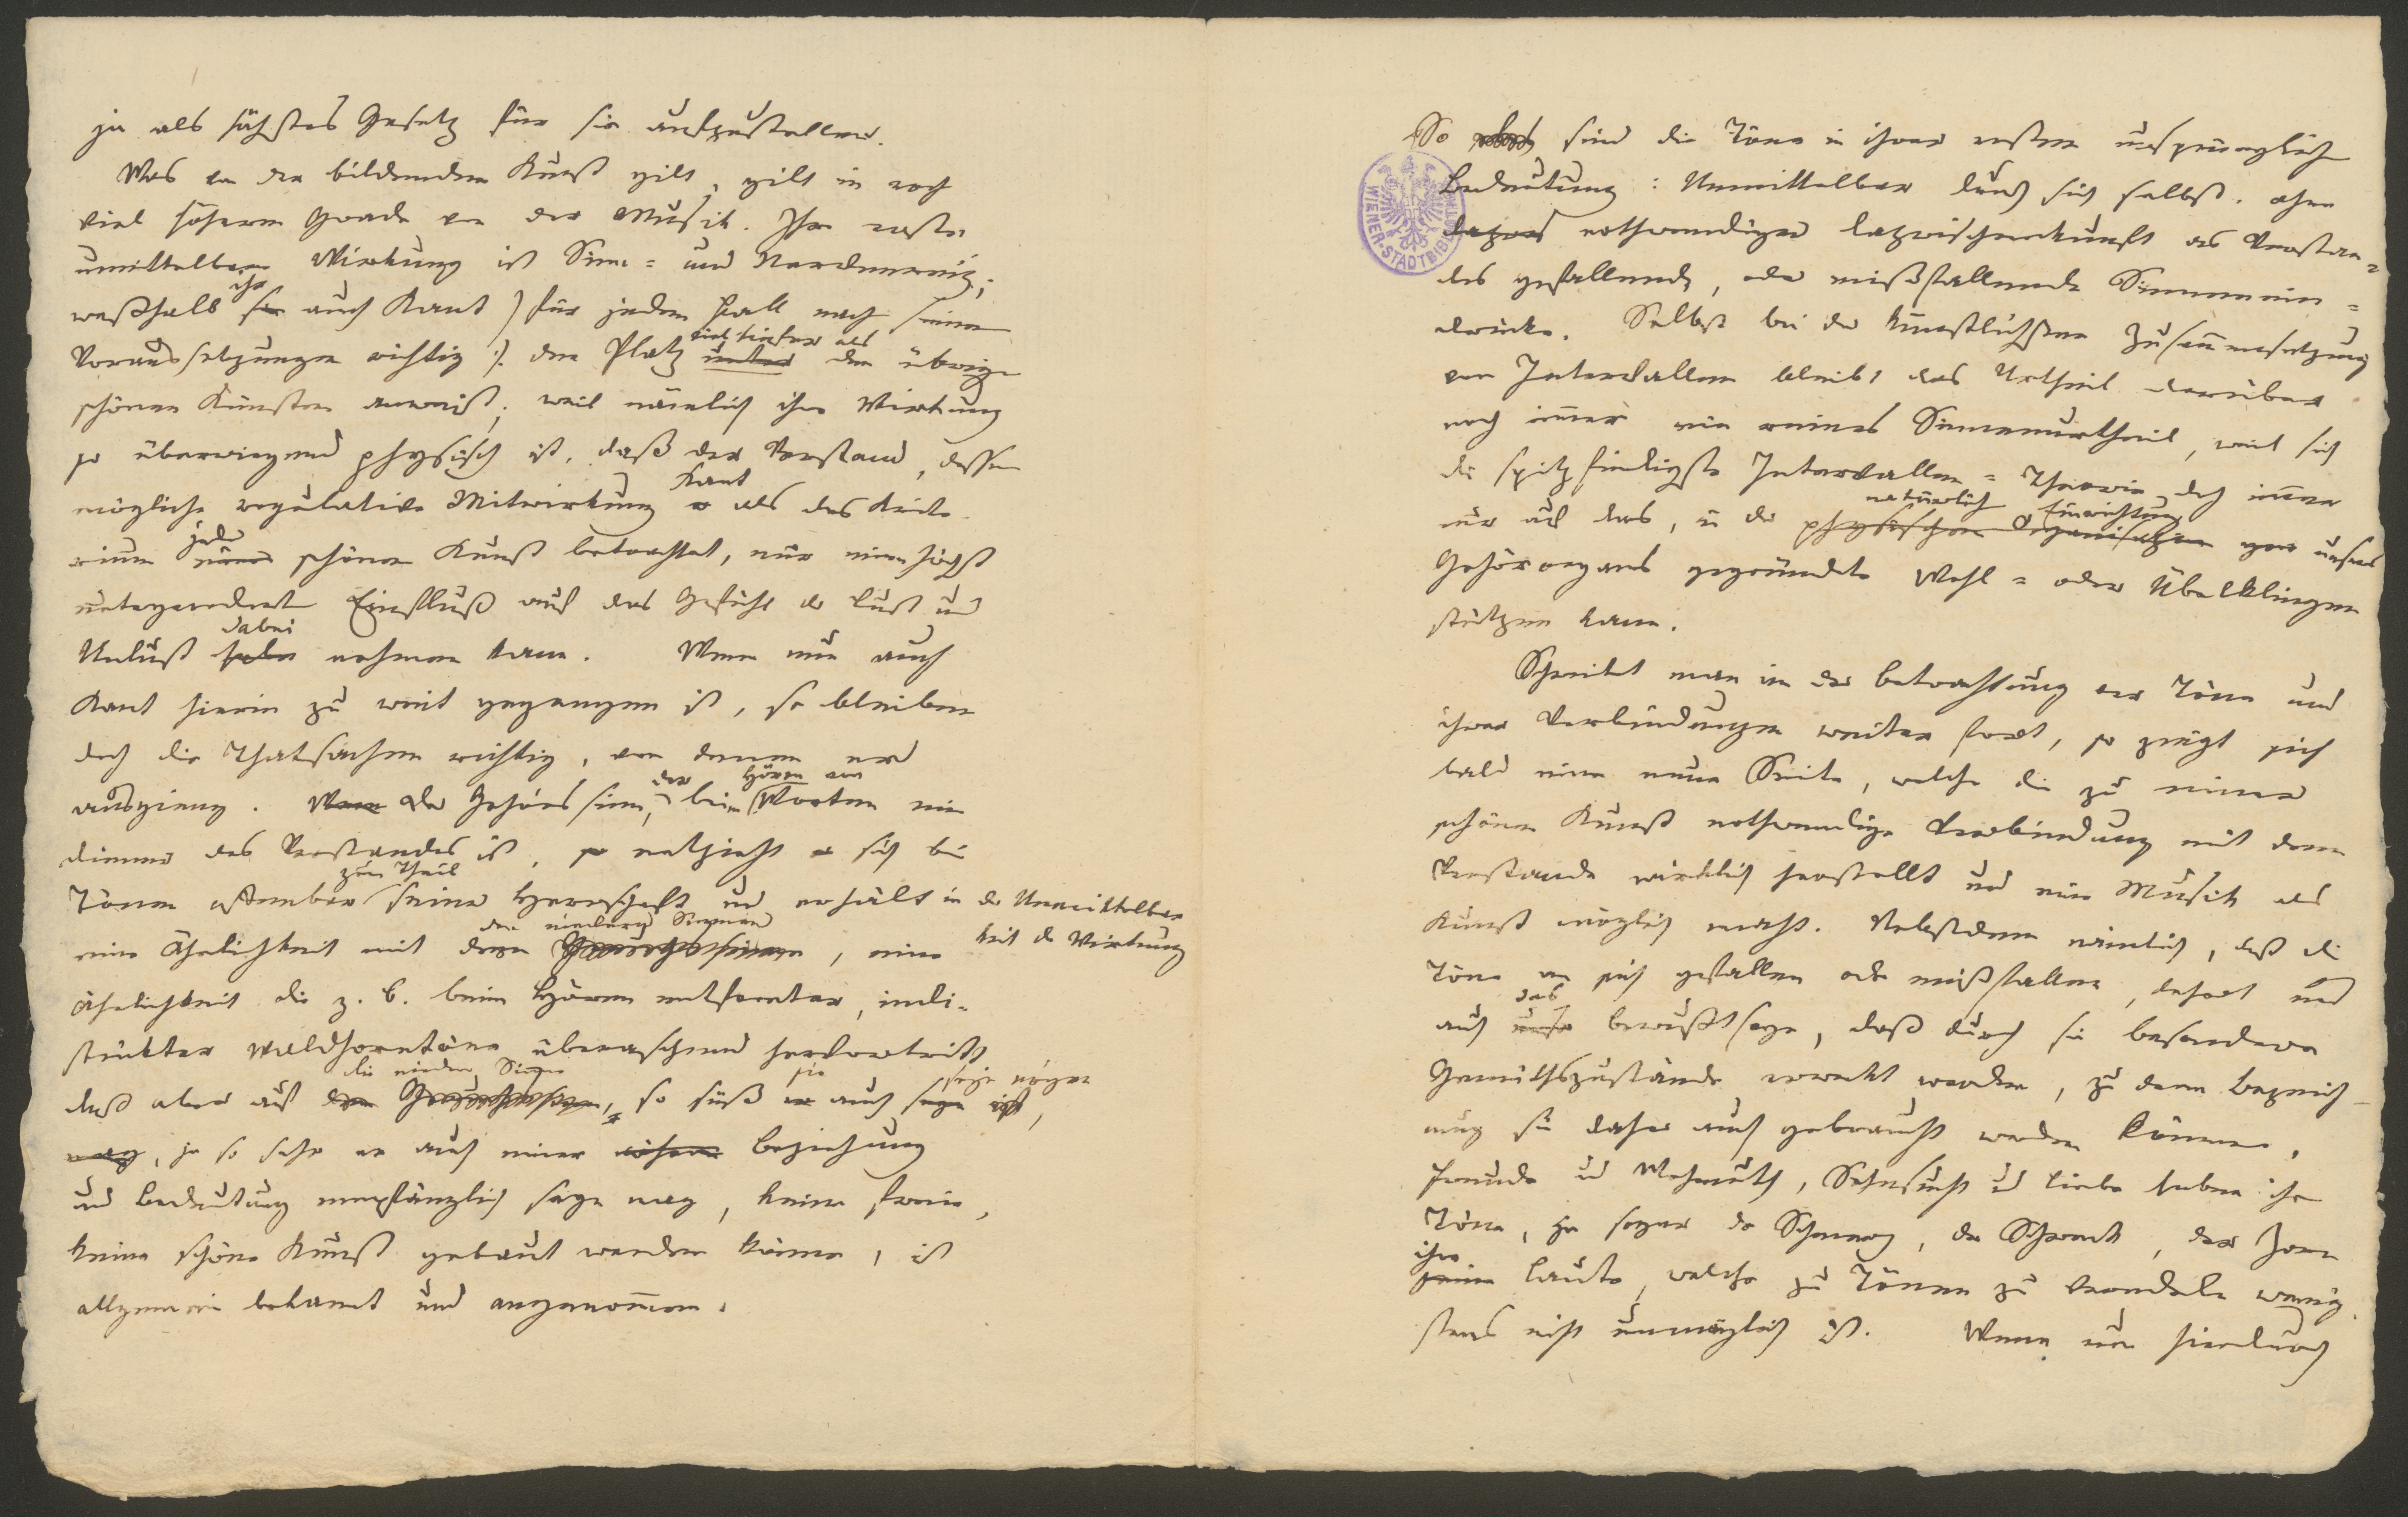 ja als höchstes Gesetz für sie aufzustellen.
Was von der bildenden Kunst gilt, gilt in noch
viel höherm Grade von der Musik. Ihre erste
unmittelbare Wirkung ist Sinn= und Nervenreiz;
weßhalb sie ihr auch Kant /: für jeden Fall nach seinen
Voraussetzungen richtig :/ den Platz unter viel tiefer als den übrigen
schönen Künsten anweist; weil nämlich ihre Wirkung
so überwiegend physisch ist, daß der Verstand, dessen
mögliche regulative Mitwirkung er Kant als das Krite-
rium einer jeder schönen Kunst betrachtet, nur einen höchst
untergeordneten Einfluß auf das Gefühl der Lust und
Unlust haben dabei nehmen kann. Wenn nun auch
Kant hierin zu weit gegangen ist, so bleiben
doch die Thatsachen richtig, von denen er
ausgieng. Wenn Der Gehörssinn, der beim Hören von Worten ein
Diener des Verstandes ist, so entzieht er sich bei
Tönen offenbar zum Theil seiner Herrschaft und erhält in der Unmittelbar
keit der Wirkung
eine Ähnlichkeit mit dem Geruchssinne den niedern Sinnen, eine
Ähnlichkeit die z. B. beim Hören entfernter, indi-
stinkter Waldhorntöne überraschend hervortritt
daß aber auf den Geruchssinn die niedern Sinne, so süß er sie auch seyn mögen,
mag, ja so sehr er auch einer höhern Beziehung
und Bedeutung empfänglich seyn mag, keine freie,
keine schöne Kunst gebaut werden könne, ist
allgemein bekannt und angenommen.
So sind die Töne in ihrer ersten ursprünglichen
WIENER-STADTBIBLIOTHEK
Bedeutung: Unmittelbar durch sich selbst, ohne
nothwendiger Dazwischenkunft des Verstan=
des gefallende, oder mißfallende Sinnenein=
drücke. Selbst bei der künstlichsten Zusammensetzung
von Intervallen bleibt das Urtheil darüber
noch immer ein reines Sinnenurtheil, weil sich
die spitzfindigste Intervallen=Theorie doch immer
nur auf das, in der physischen Organisation natürlichen Einrichtung unsers
Gehörorgans gegründete Wohl= oder Übelklingen
stützen kann.
Schreitet man in der Betrachtung der Töne und
ihrer Verbindungen weiter fort, so zeigt sich
bald eine neue Seite, welche die zu einer
schönen Kunst nothwendige Verbindung mit dem
Verstande wirklich herstellt und eine Musik als
Kunst möglich macht. Nebstdem nämlich, daß die
Töne an sich gefallen oder mißfallen, lehrt uns
auch unser das Bewußtseyn, daß durch sie besondere
Gemüthszustände erweckt werden, zu deren Bezeich-
nung sie daher auch gebraucht werden können,
Freude und Wehmuth, Sehnsucht und Liebe haben ihre
Töne, ja sogar der Schmerz, der Schreck, der Zorn
seine ihre Laute, welche zu Tönen zu veredeln wenig-
stens nicht unmöglich ist. Wenn nun hierdurch